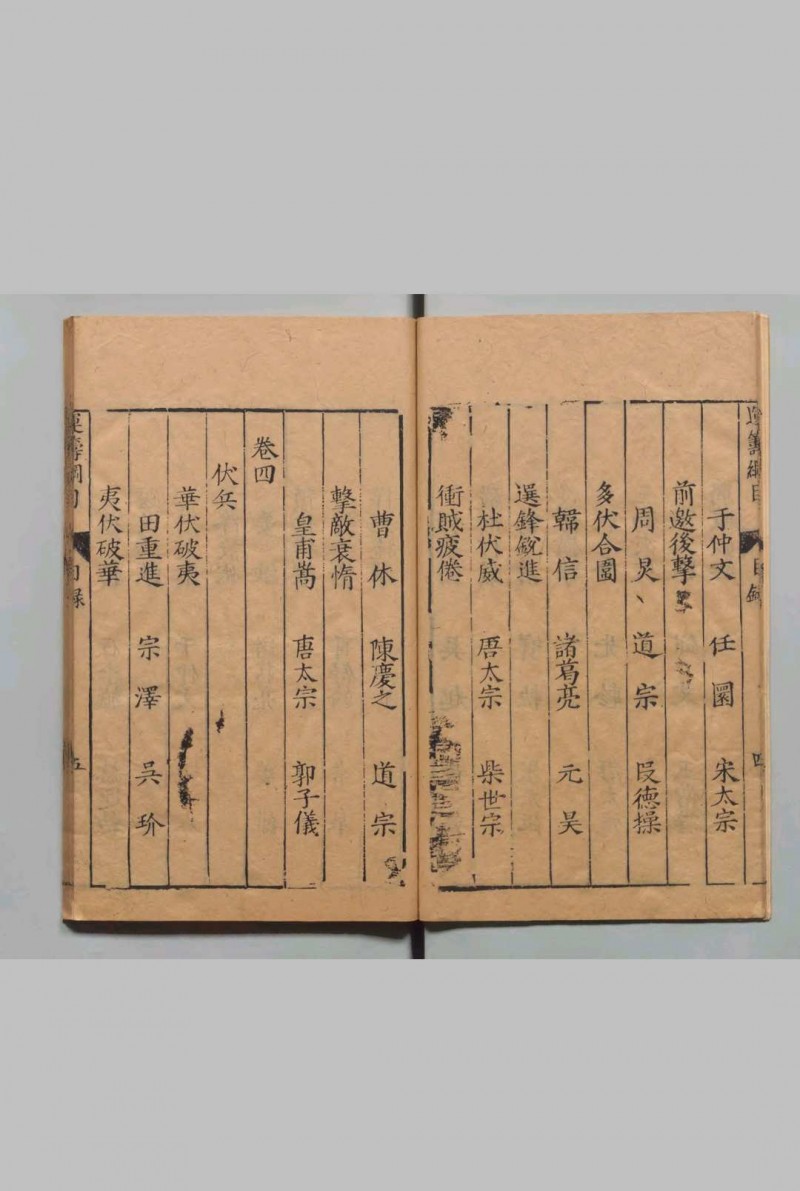 運籌綱目 目錄 四
于仲文 任圜 宋太宗
前邀後擊
周炅、道宗 段德操
多伏合圍
韓信 諸葛亮 元昊
選鋒銳進
杜伏威 唐太宗 柴世宗
衝賊疲倦
曹休 陳慶之 道宗
擊敵衰惰
皇甫嵩 唐太宗 郭子儀
卷四
伏兵
華伏破夷
田重進 宗澤 吳玠
夷伏破華
運籌綱目 目錄 五